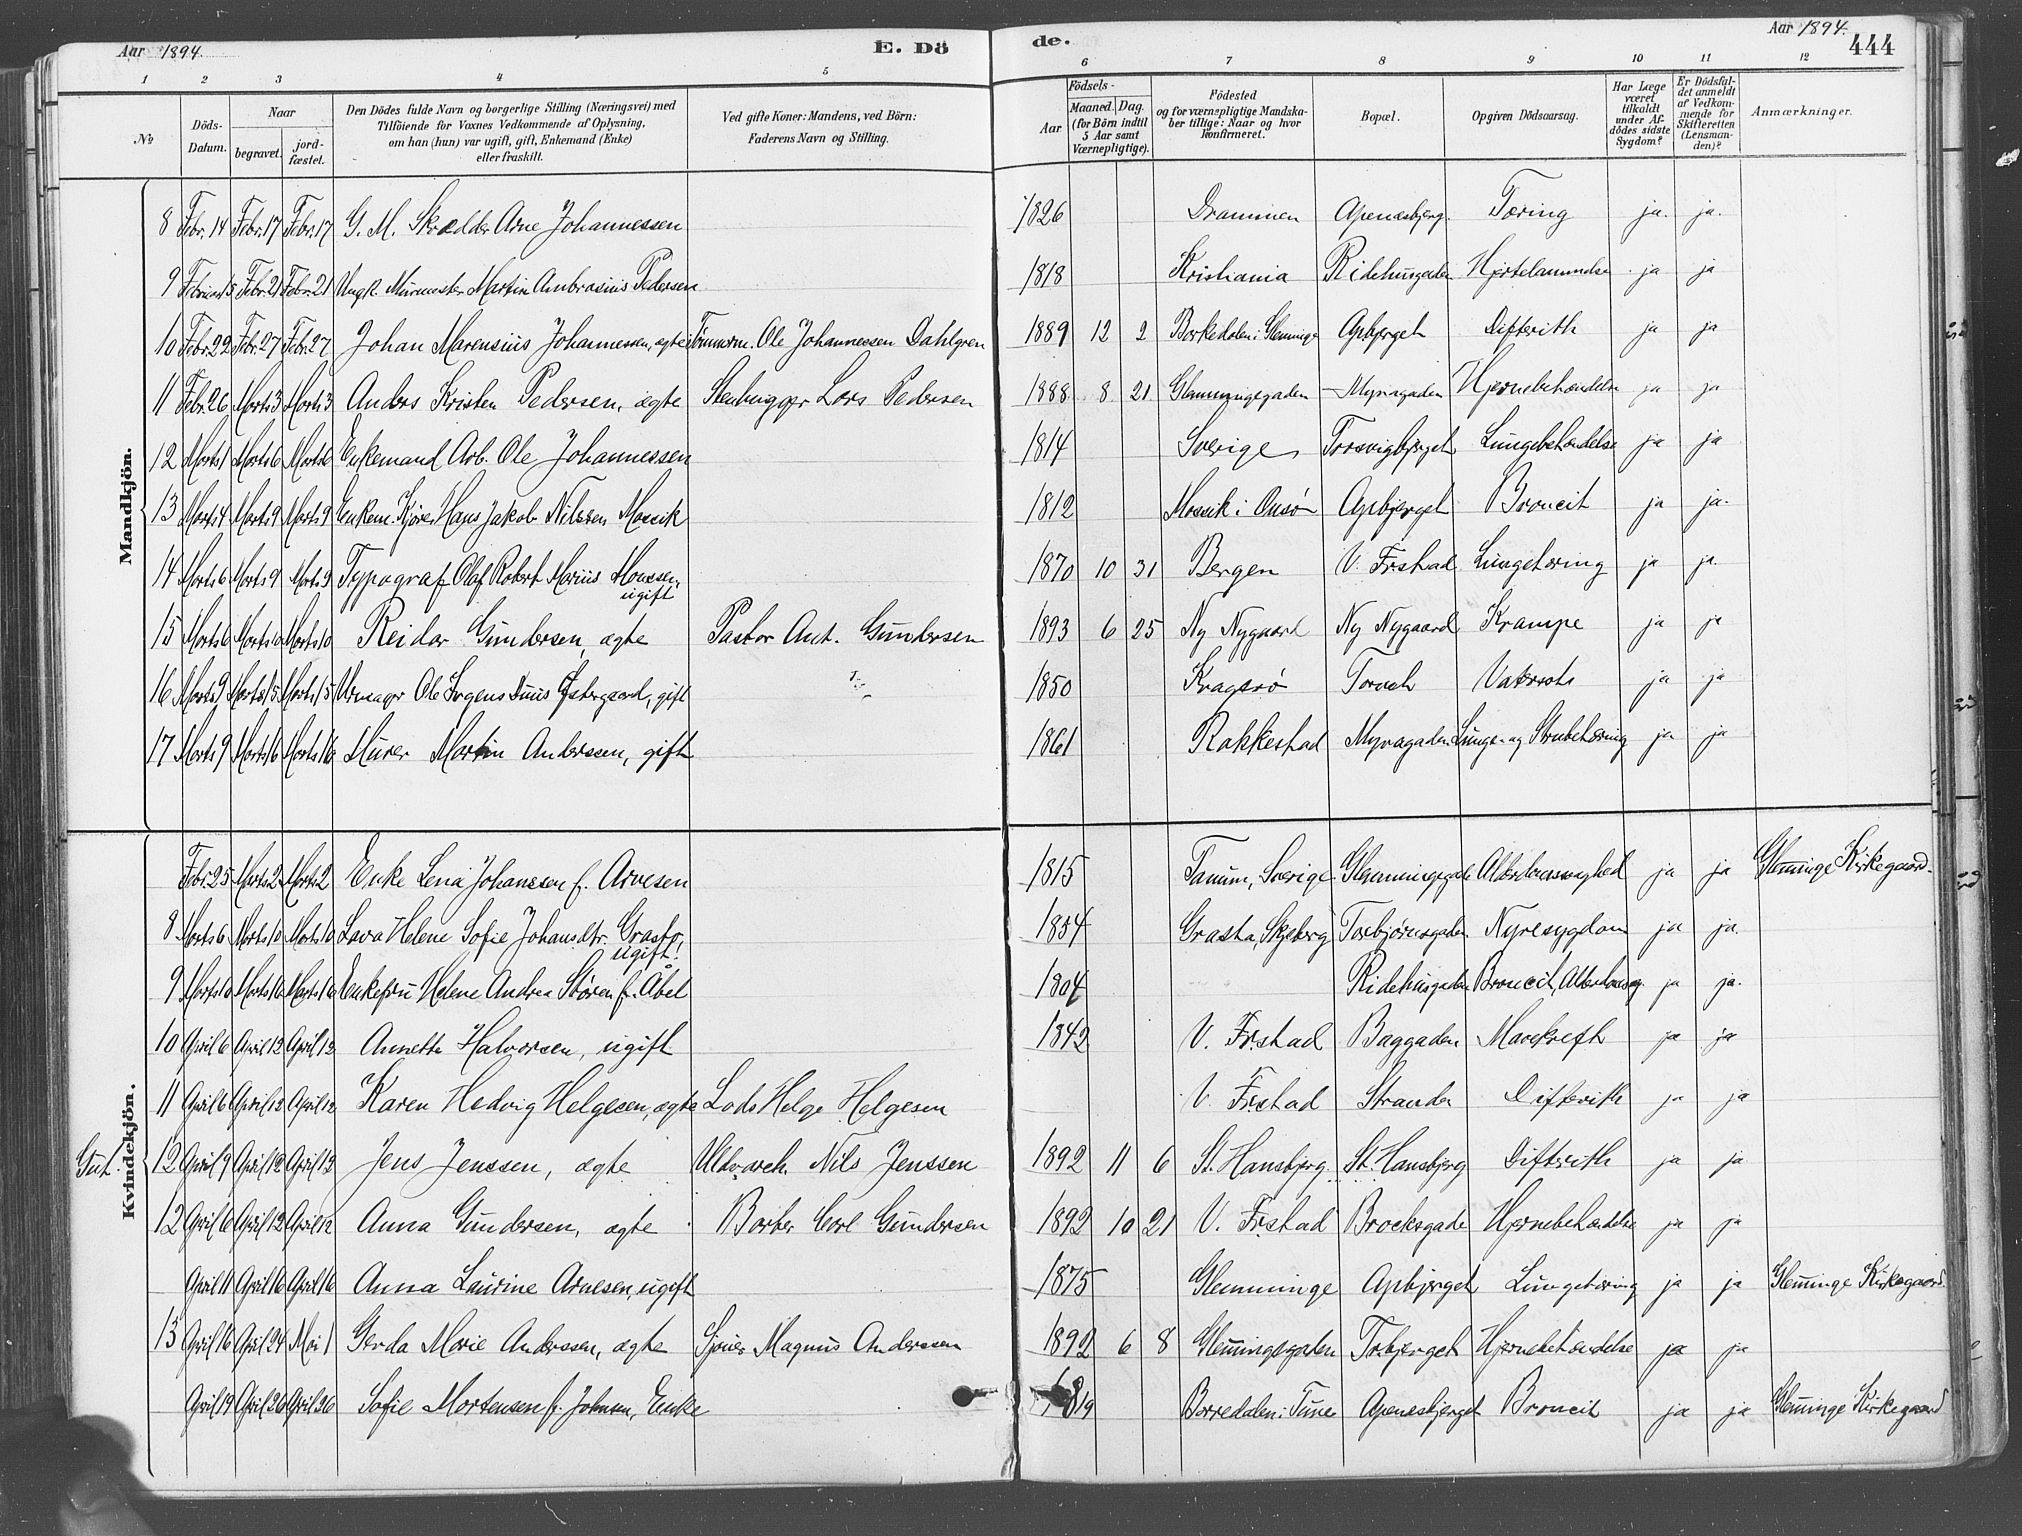 Aar 1894.
E. Dö
de.
Aar 1894.
444
1 2 3 4 5 6 7 8 9 10 11 12
No
Döds-Datum.
Naar
begravet.
jord-fæstet.
Den Dödes fulde Navn og borgerlige Stilling (Næringsvei) med
Tilföiende for Voxnes Vedkommende af Oplysning,
om han (hun) var ugift, gift, Enkemand (Enke)
eller fraskilt.
Ved gifte Koner: Mandens, ved Börn:
Faderens Navn og Stilling.
Födsels-
Aar
Maaned. Dag.
(for Börn indtil
5 Aar samt
Værnepligtige).
Födested
og for værnepligtige Mandska-
ber tillige: Naar og hvor
konfirmeret.
Bopæl.
Opgiven Dödsaarsag.
Har Læge
været
tilkaldt
under Af-
dödes sidste
Sygdom?
Er Dödsfal-
det anmeldt
af Vedkom-
mende for
Skifteretten
(Lensman-
den)?
Anmærkninger.
Mandkjön.
8 Febr. 14 Febr. 17 Febr. 17 G. M. Skrædder Arne Johannessen 1826 Drammen Apenæsbjerg. Tæring ja. ja.
9 Februar 15 Febr. 21 Febr. 21 Ungk. Murmester Martin Ambrosius Pedersen 1818 Kristiania Ridehusgaden Hjertelammelse ja ja
10 Febr. 22 Febr. 27 Febr. 27 Johan Marensius Johannessen, ægte Tømmerm. Ole Johannessen Dahlgren 1889 12 2 Borkedalen i Glemminge Apbjerget Difterith ja ja
11 Febr. 26 Marts 3 Marts 3 Anders Kristen Pedersen, ægte Stenhugger Lars Pedersen 1888 8 21 Glemmingegaden Myragaden Hjernebetændelse ja ja
12 Marts 1 Marts 6 Marts 6 Enkemand Arb. Ole Johannessen 1814 Sverige Trosvigbjerget Lungebetændelse ja ja
13 Marts 4 Marts 9 Marts 9 Enkem. Kjører Hans Jakob Nilssen Mossik 1812 Mossik i Onsø Apbjerget Broncit ja ja.
14 Marts 6 Marts 9 Marts 9 Typograf Olaf Robert Marius Monssen, ugift 1870 10 31 Bergen V. Frstad Lungetæring ja ja
15 Marts 6 Marts 10 Marts 10 Reidar Gundersen, ægte Pastor Ant. Gundersen 1893 6 25 Ny Nygaard Ny Nygaard Krampe ja ja
16 Marts 9 Marts 15 Marts 15 Urmager Ole Jørgens Duus Østergaard, gift 1850 Kragerø Torvet Vatersot ja ja
17 Marts 9 Marts 16 Marts 16 Murer Martin Anderssen, gift 1861 Rakkestad Myragaden Lunge- og Strubetæring ja ja
Kvindekjön.
Febr. 25 Marts 2 Marts 2 Enke Lena Johanssen f. Arvesen 1815 Tanum, Sverige Glemmingegade Alderdomssvaghed ja ja Glemminge Kirkegaard.
8 Marts 6 Marts 10 Marts 10 Lava Helene Sofie Johansdtr. Grasto, ugift. 1834 Grasta, Skjeberg Torbjørnsgaden Nyresygdom ja ja.
9 Marts 10 Marts 16 Marts 16 Enkefru Helene Andrea Støren f. Åbel 1804 Ridehusgaden Broncit, ja ja.
10 April 6 April 12 April 12 Annette Halvorsen, ugift 1842 V. Frstad Baggaden Mavekreft ja ja
11 April 6 April 12 April 12 Karen Hedvig Helgesen, ægte Lods Helge Helgesen V. Frstad Stranden Difterith ja ja
Gut. 12 April 9 April 12 April 12 Jens Jenssen, ægte Uldvareh. Nils Jenssen 1892 11 6 St. Hansbjerg St. Hansbjerg Difterith ja ja
12 April 6 April 12 April 12 Anna Gundersen, ægte Barber Carl Gundersen 1892 10 21 V. Frstad Brocksgade Hjernebetændelse ja ja
April 11 April 16 April 16 Anna Laurine Arnesen, ugift 1875 Glemminge Apbjerget Lungetæring ja ja Glemminge Kirkegaard.
13 April 16 April 24 Mai 1 Gerda Marie Anderssen, ægte Sjøuer Magnus Anderssen 1892 6 8 Glemmingegaden Torbjerget Hjernebetændelse ja ja
April 19 April 26 April 26 Sofie Mortensen f. Johnsen, Enke 1819 Borredalen i Tune Apenesbjerget Broncit ja ja Glemminge Kirkegaard